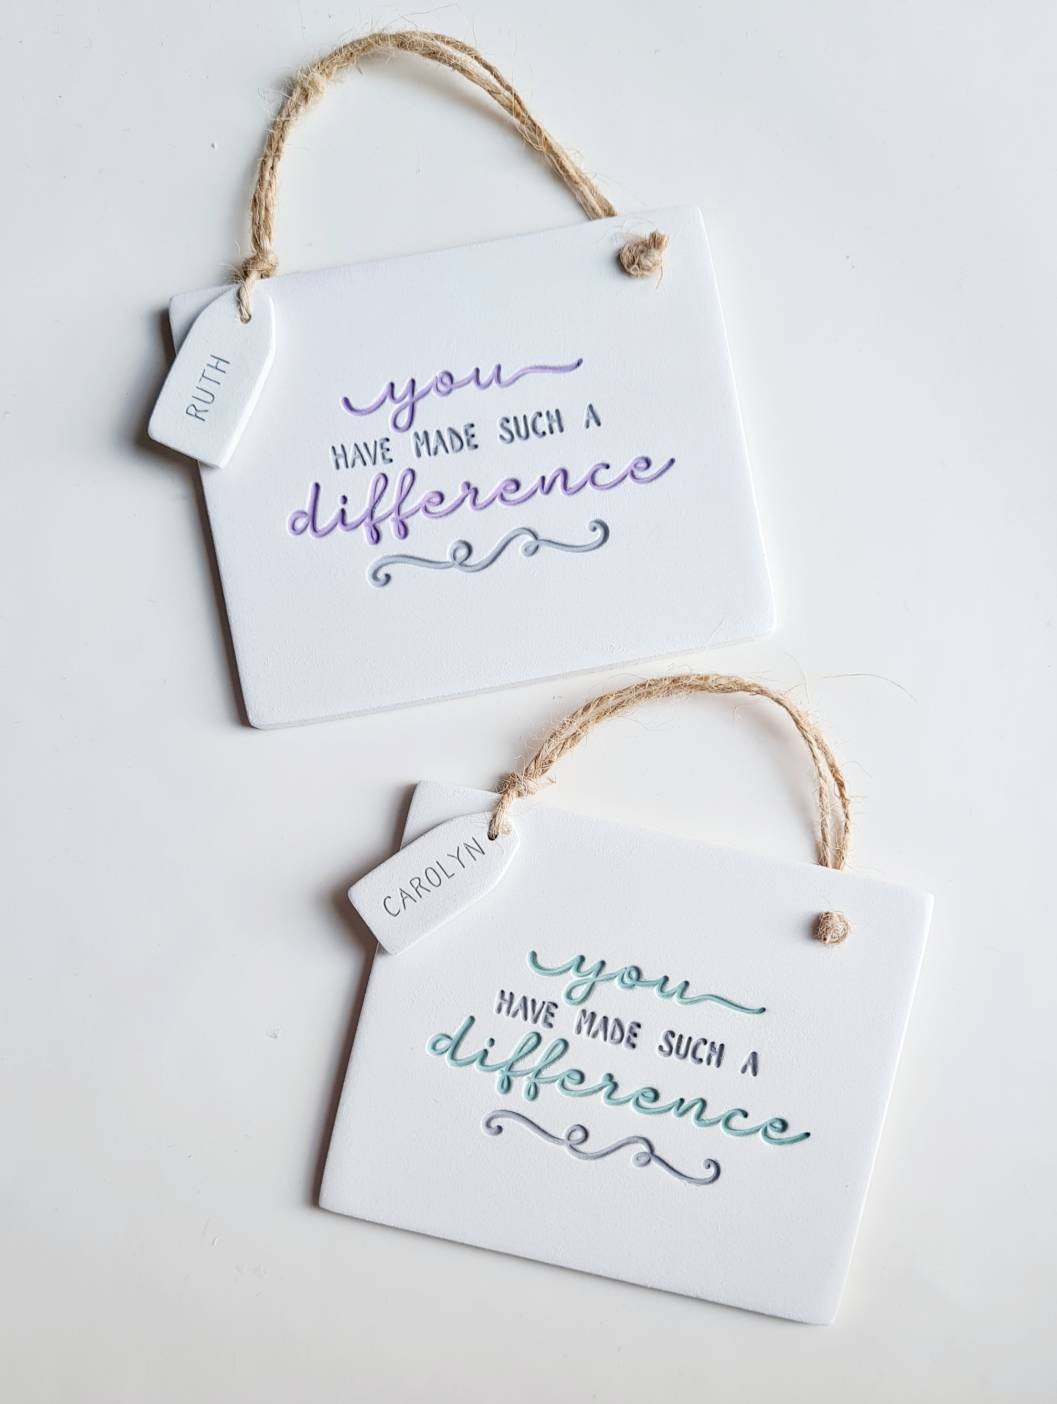 RUTH
you
HAVE MADE SUCH A
difference
CAROLYN
you
HAVE MADE SUCH A
difference